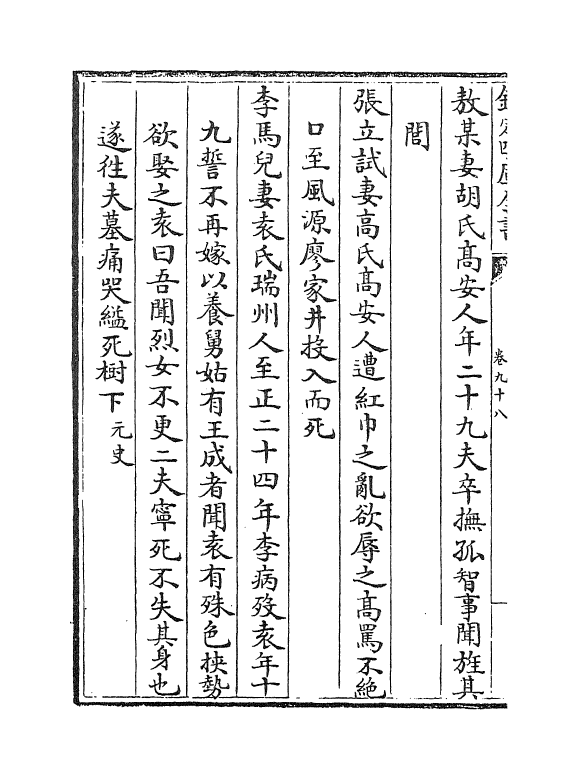 欽定四庫全書
卷九十八
敖某妻胡氏髙安人年二十九夫卒撫孤智事聞旌其
閭
張立試妻高氏髙安人遭紅巾之亂欲辱之髙罵不絶
口至風源廖家井投入而死
李馬兒妻袁氏瑞州人至正二十四年李病歿袁年十
九誓不再嫁以養舅姑有王成者聞袁有殊色挾勢
欲娶之袁曰吾聞烈女不更二夫寧死不失其身也
遂徃夫墓痛哭縊死樹下元史